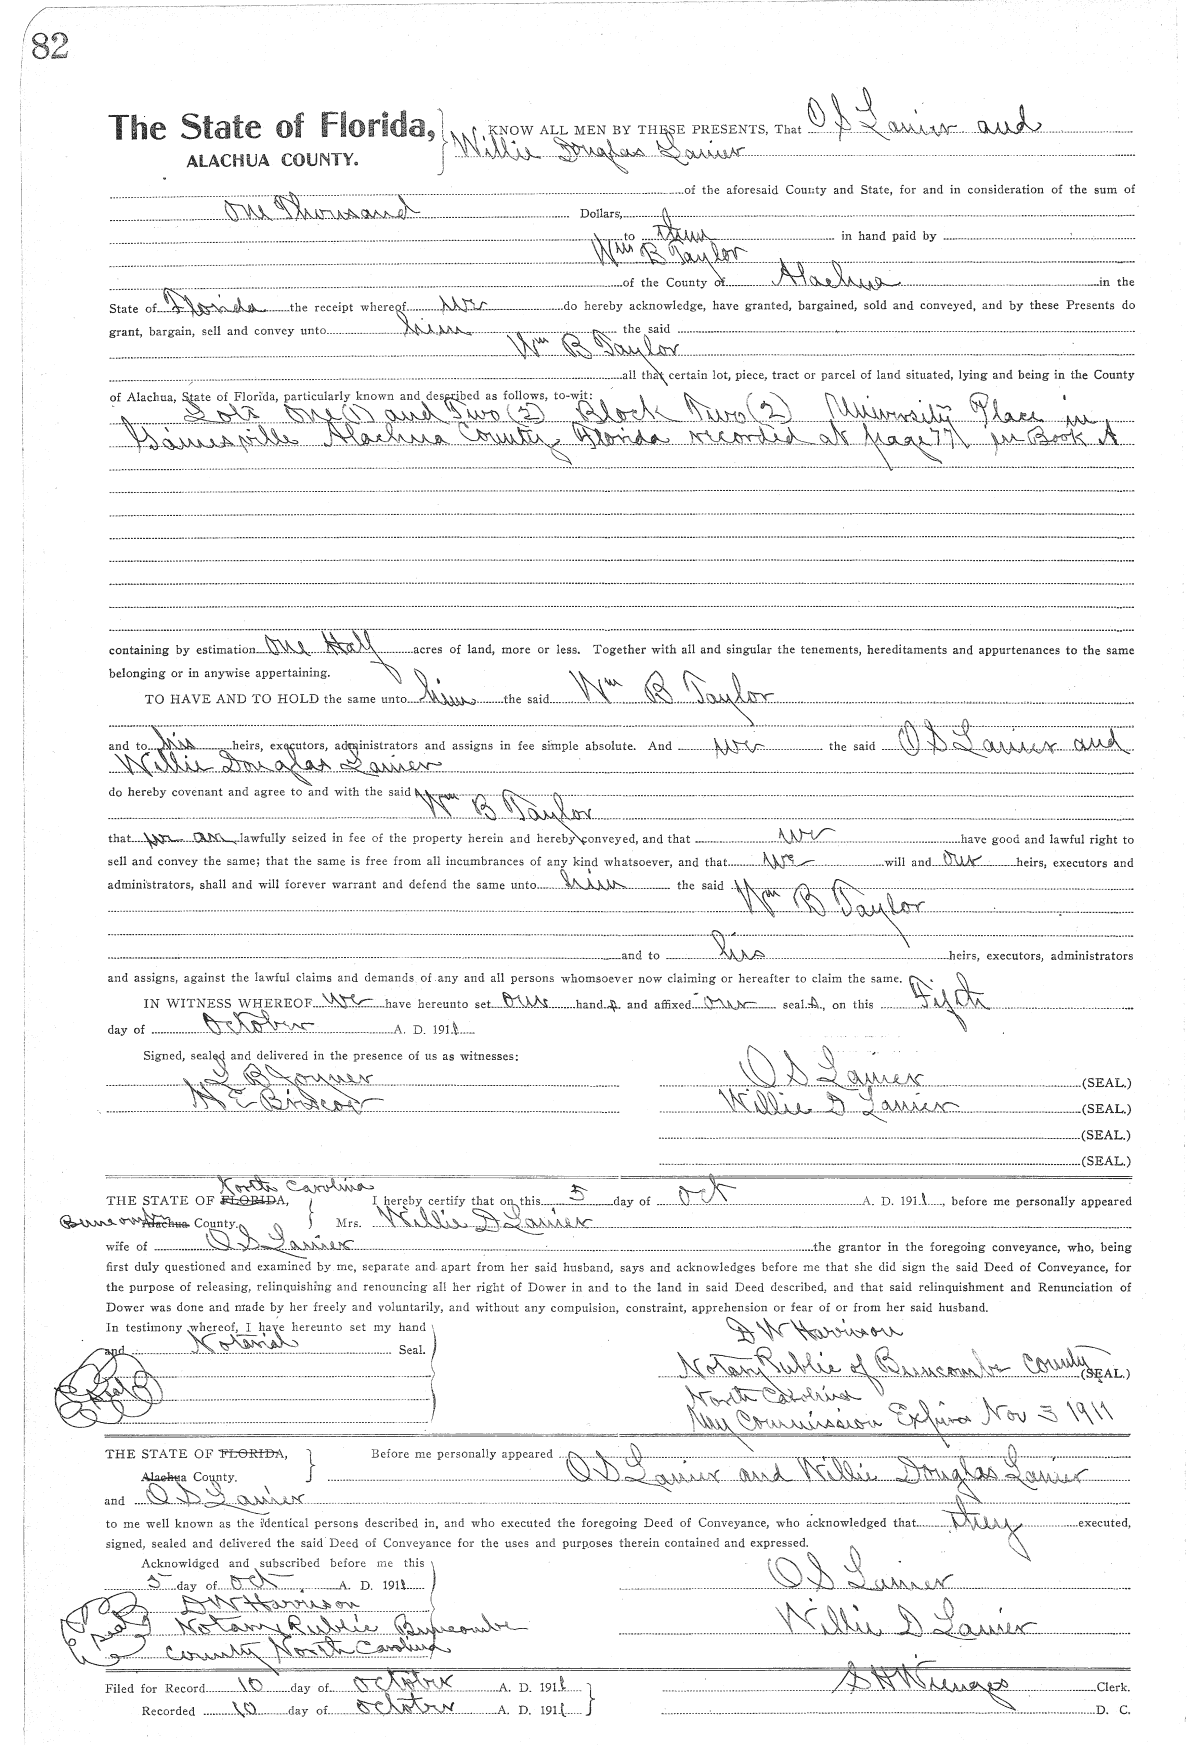 82
The State of Florida, KNOW ALL MEN BY THESE PRESENTS, That O S Lanier and
ALACHUA COUNTY. Willie Douglas Lanier
of the aforesaid County and State, for and in consideration of the sum of
One Thousand Dollars,
to them in hand paid by
Wm B Taylor
of the County of Alachua in the
State of Florida the receipt whereof we do hereby acknowledge, have granted, bargained, sold and conveyed, and by these Presents do
grant, bargain, sell and convey unto him the said
Wm B Taylor
all that certain lot, piece, tract or parcel of land situated, lying and being in the County
of Alachua, State of Florida, particularly known and described as follows, to-wit:
Lots One (1) and Two (2) Block Two (2) University Place in
Gainesville Alachua County, Florida recorded at page 77 in Book A
containing by estimation One Half acres of land, more or less. Together with all and singular the tenements, hereditaments and appurtenances to the same
belonging or in anywise appertaining.
TO HAVE AND TO HOLD the same unto him the said Wm B Taylor
and to his heirs, executors, administrators and assigns in fee simple absolute. And we the said O S Lanier and
Willie Douglas Lanier
do hereby covenant and agree to and with the said Wm B Taylor
that we are lawfully seized in fee of the property herein and hereby conveyed, and that we have good and lawful right to
sell and convey the same; that the same is free from all incumbrances of any kind whatsoever, and that we will and our heirs, executors and
administrators, shall and will forever warrant and defend the same unto him the said
Wm B Taylor
and to his heirs, executors, administrators
and assigns, against the lawful claims and demands of any and all persons whomsoever now claiming or hereafter to claim the same.
IN WITNESS WHEREOF we have hereunto set our hands and affixed our seals, on this Fifth
day of October A. D. 1911
Signed, sealed and delivered in the presence of us as witnesses:
L B Joyner O S Lanier (SEAL.)
H E Briscoe Willie D Lanier (SEAL.)
(SEAL.)
(SEAL.)
North Carolina
THE STATE OF FLORIDA, I hereby certify that on this 5 day of Oct A. D. 1911, before me personally appeared
Buncombe Alachua County. Mrs. Willie D Lanier
wife of O S Lanier the grantor in the foregoing conveyance, who, being
first duly questioned and examined by me, separate and apart from her said husband, says and acknowledges before me that she did sign the said Deed of Conveyance, for
the purpose of releasing, relinquishing and renouncing all her right of Dower in and to the land in said Deed described, and that said relinquishment and Renunciation of
Dower was done and made by her freely and voluntarily, and without any compulsion, constraint, apprehension or fear of or from her said husband.
In testimony whereof, I have hereunto set my hand D W Harrison
and Notarial Seal.
Seal Notary Public of Buncombe County (SEAL.)
North Carolina
My Commission Expires Nov 3 1911
THE STATE OF FLORIDA, Before me personally appeared
Alachua County. O S Lanier and Willie Douglas Lanier
and O S Lanier
to me well known as the identical persons described in, and who executed the foregoing Deed of Conveyance, who acknowledged that they executed,
signed, sealed and delivered the said Deed of Conveyance for the uses and purposes therein contained and expressed.
Acknowldged and subscribed before me this
5 day of Oct, A. D. 1911 O S Lanier
D W Harrison
Seal Notary Public Buncombe Willie D Lanier
County North Carolina
Filed for Record 10 day of October A. D. 1911 S H Wienges Clerk.
Recorded 10 day of October A. D. 1911 D. C.